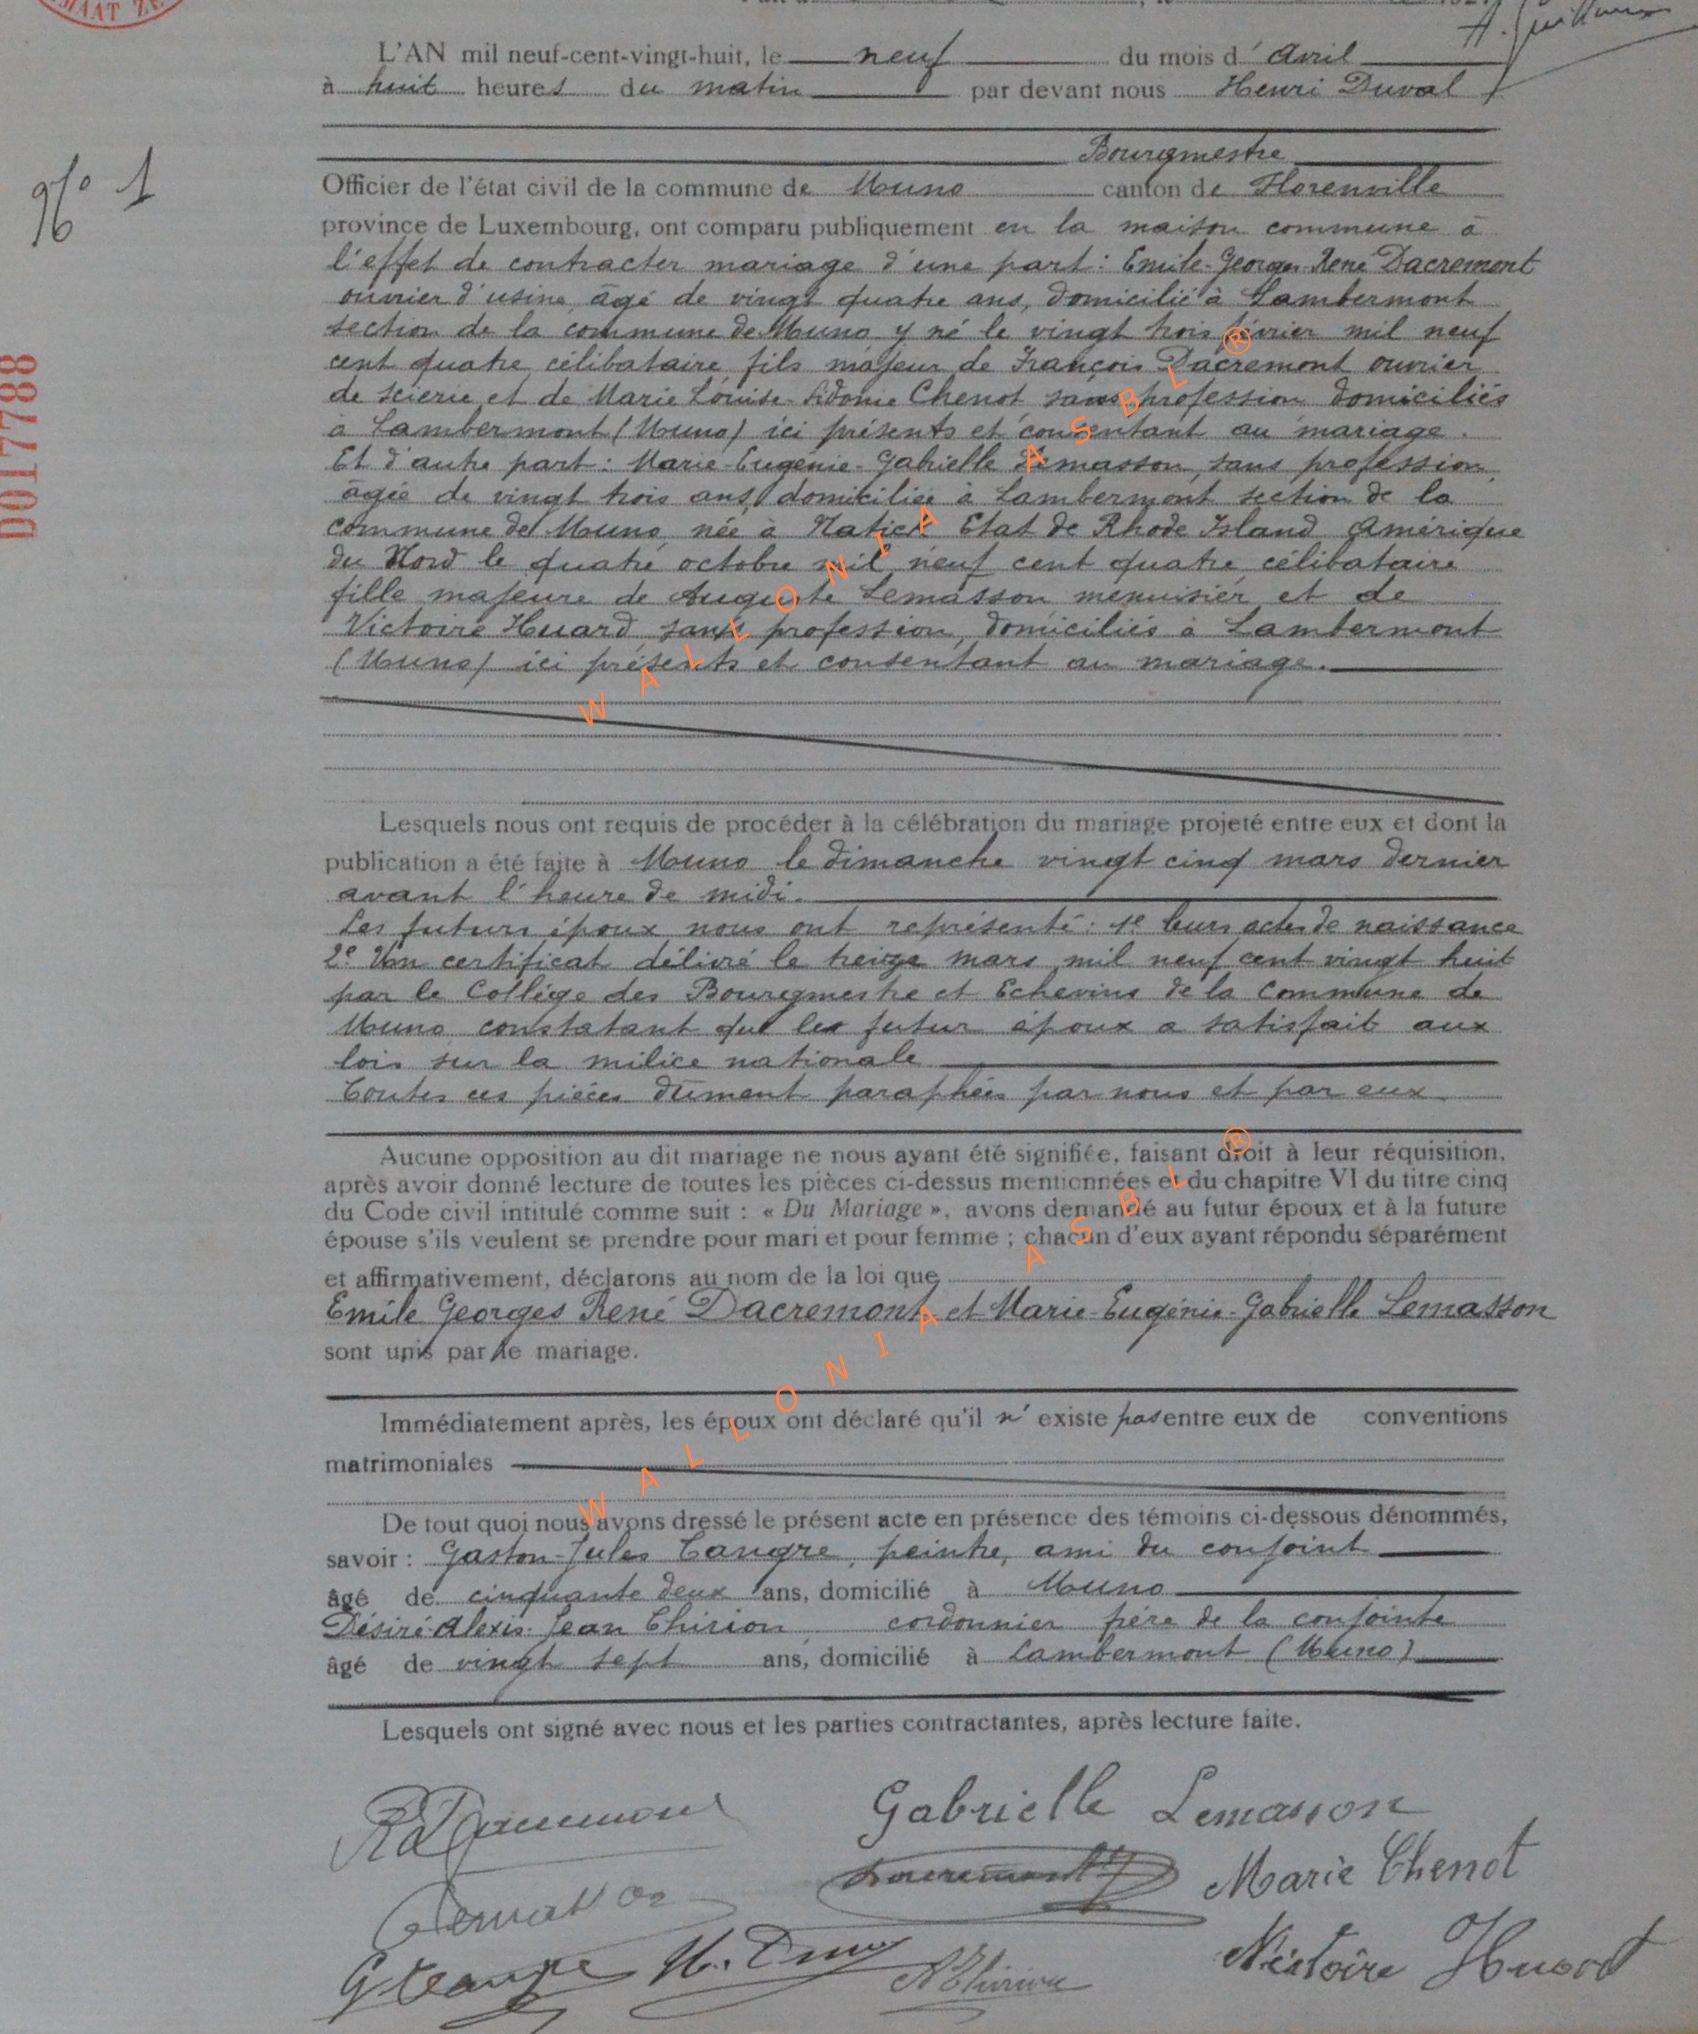 L'AN mil neuf-cent-vingt-huit, le neuf du mois d' Avril
à huit heures du matin par devant nous Henri Duval
Bourgmestre
N° 1
Officier de l'état civil de la commune de Muno canton de Florenville
province de Luxembourg, ont comparu publiquement en la maison commune à
l'effet de contracter mariage d'une part : Emile-Georges-René Dacremont
ouvrier d'usine, âgé de vingt quatre ans, domicilié à Lambermont
section de la commune de Muno y né le vingt trois février mil neuf
cent quatre célibataire fils majeur de François Dacremont ouvrier
de scierie et de Marie Louise-Sidonie Chenot sans profession domiciliés
à Lambermont (Muno) ici présents et consentant au mariage.
Et d'autre part : Marie-Eugénie-Gabrielle Lemasson, sans profession,
âgée de vingt trois ans, domiciliée à Lambermont section de la
commune de Muno, née à Natick Etat de Rhode Island Amérique
du Nord le quatre octobre mil neuf cent quatre, célibataire
fille majeure de Auguste Lemasson menuisier et de
Victoire Huard, sans profession, domiciliés à Lambermont
(Muno) ici présents et consentant au mariage.
Lesquels nous ont requis de procéder à la célébration du mariage projeté entre eux et dont la
publication a été faite à Muno le dimanche vingt cinq mars dernier
avant l'heure de midi.
Les futurs époux nous ont représenté : 1° leurs actes de naissance
2° Un certificat délivré le treize mars mil neuf cent vingt huit
par le Collège des Bourgmestre et Echevins de la Commune de
Muno constatant que le futur époux a satisfait aux
lois sur la milice nationale
Toutes ces pièces dûment paraphées par nous et par eux.
Aucune opposition au dit mariage ne nous ayant été signifiée, faisant droit à leur réquisition,
après avoir donné lecture de toutes les pièces ci-dessus mentionnées et du chapitre VI du titre cinq
du Code civil intitulé comme suit : « Du Mariage », avons demandé au futur époux et à la future
épouse s'ils veulent se prendre pour mari et pour femme ; chacun d'eux ayant répondu séparément
et affirmativement, déclarons au nom de la loi que
Emile Georges René Dacremont et Marie-Eugénie-Gabrielle Lemasson
sont unis par le mariage.
Immédiatement après, les époux ont déclaré qu'il n' existe pas entre eux de conventions
matrimoniales
De tout quoi nous avons dressé le présent acte en présence des témoins ci-dessous dénommés,
savoir : Gaston-Jules Tangre, peintre, ami du conjoint
âgé de cinquante deux ans, domicilié à Muno
Désiré-Alexis-Jean Thirion, cordonnier frère de la conjointe
âgé de vingt sept ans, domicilié à Lambermont (Muno)
Lesquels ont signé avec nous et les parties contractantes, après lecture faite.
R Dacremont
Gabrielle Lemasson
Dacremont
Marie Chenot
Lemasson
G Tangre
Thirion
Victoire Huard
D017788
WALLONIA ASBL ®
WALLONIA ASBL ®